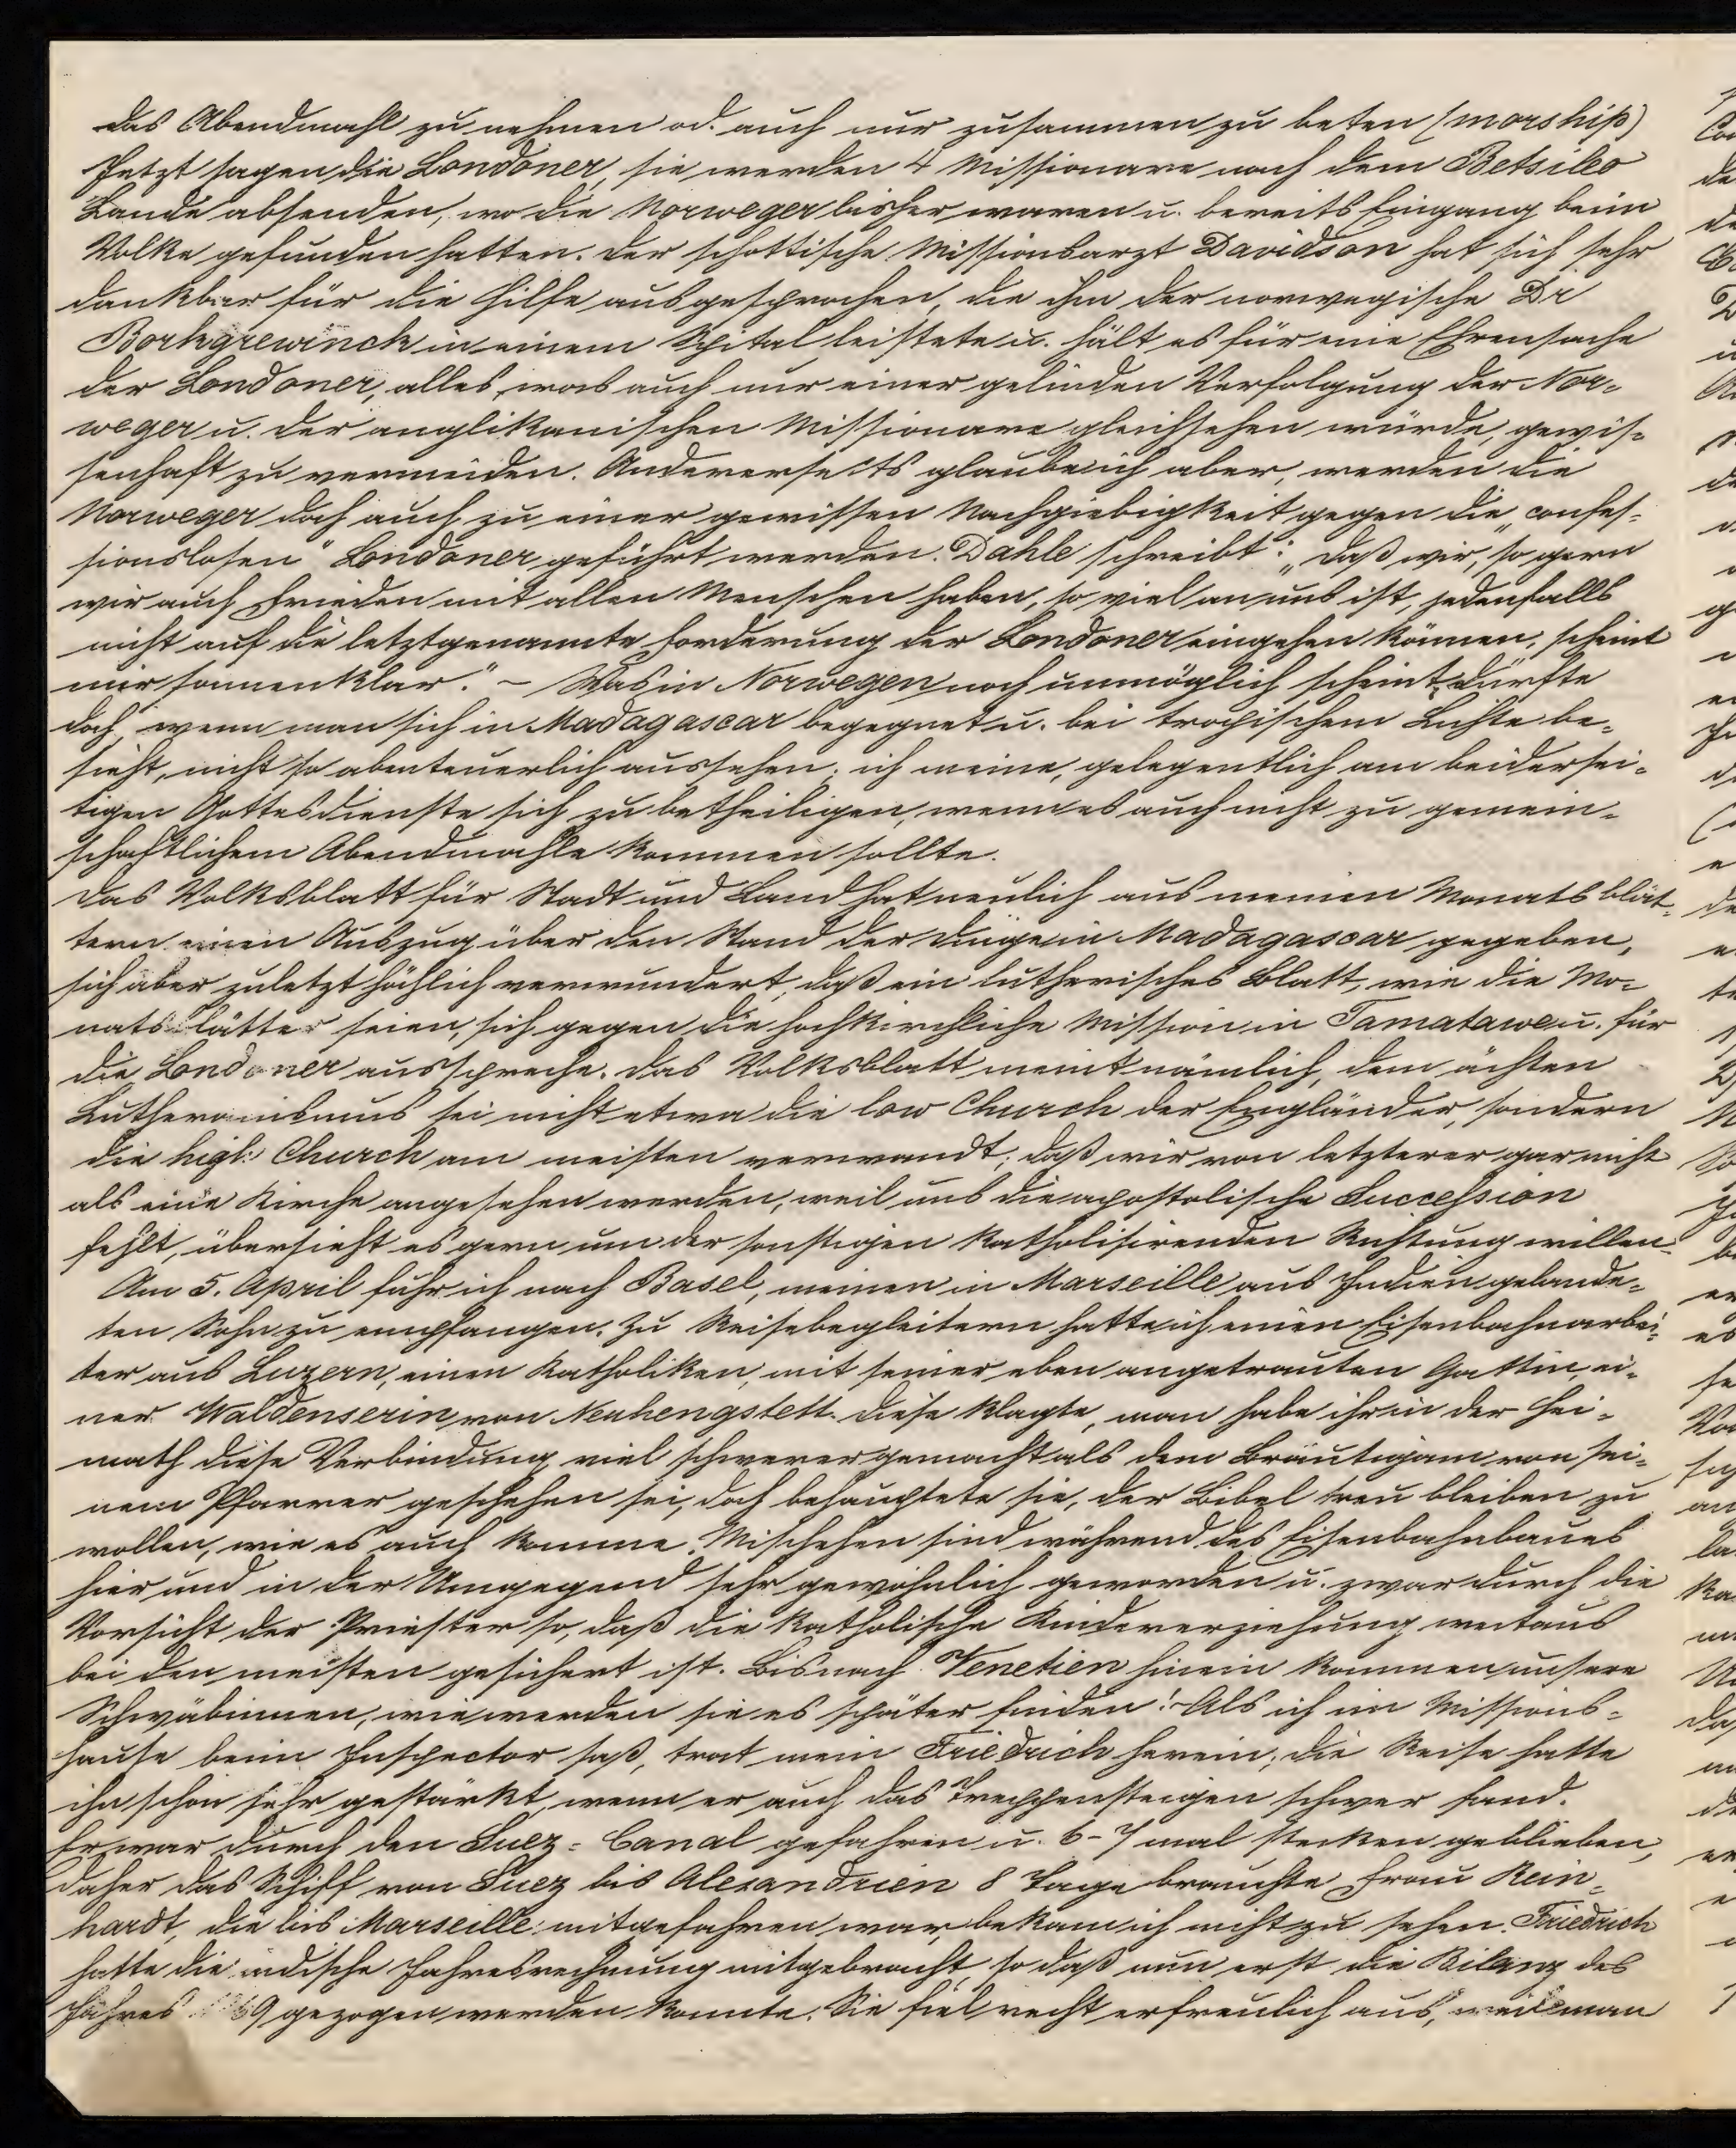 das Abendmahl zu nehmen od. auch nur zusammen zu beten (worship)
Jetzt sagen die Londoner, sie werden 4 Missionare nach dem Betsileo
Lande absenden, wo die Norweger bisher waren u. bereits Eingang beim
Volke gefunden hatten. Der schottische Missionsarzt Davidson hat sich sehr
dankbar für die Hilfe ausgesprochen, die ihm der norwegische Dr
Borhgrewinck in einem Spital leistete u. hält es für eine Ehrensache
der Londoner, alles, was auch nur einer gelinden Verfolgung der Nor-
weger u. der anglikanischen Missionare gleichsehen würde, gewis-
senhaft zu vermeiden. Andererseits glaube ich aber, werden die
Norweger doch auch zu einer gewissen Nachgiebigkeit gegen die „confes-
sionslosen" Londoner geführt werden. Dahle schreibt: „Daß wir, so gern
wir auch Frieden mit allen Menschen haben, so viel an uns ist, jedenfalls
nicht auf die letztgenannte Forderung der Londoner eingehen können, scheint
mir sonnenklar." – Was in Norwegen noch unmöglich scheint, dürfte
doch, wenn man sich in Madagascar begegnet u. bei tropischem Lichte be-
sieht, nicht so abenteuerlich aussehen; ich meine, gelegentlich am beidersei-
tigen Gottesdienste sich zu betheiligen, wenn es auch nicht zu gemein-
schaftlichem Abendmahle kommen sollte.
Das Volksblatt für Stadt und Land hat neulich aus meinen Monatsblät-
tern einen Auszug über den Stand der Dinge in Madagascar gegeben,
sich aber zuletzt höchlich verwundert, daß ein lutherisches Blatt, wie die Mo-
natsblätter seien, sich gegen die hochkirchliche Mission in Tamatawe u. für
die Londoner ausspreche. Das Volksblatt meint nämlich, dem ächten
Lutheranismus sei nicht etwa die low Church der Engländer, sondern
die high Church am meisten verwandt; daß wir von letzterer gar nicht
als eine Kirche angesehen werden, weil uns die apostolische Succession
fehlt, übersieht es gern um der sonstigen katholisirenden Richtung willen.
Am 5. April fuhr ich nach Basel, meinen in Marseille aus Indien gelande-
ten Sohn zu empfangen. Zu Reisebegleitern hatte ich einen Eisenbahnarbei-
ter aus Luzern, einen Katholiken, mit seiner eben angetrauten Gattin, ei-
ner Waldenserin von Neuhengstett. Diese klagte, man habe ihr in der Hei-
math diese Verbindung viel schwerer gemacht als dem Bräutigam von sei-
nem Pfarrer geschehen sei, doch behauptete sie, der Bibel treu bleiben zu
wollen, wie es auch komme. Mischehen sind während des Eisenbahnbaues
hier und in der Umgegend sehr gewöhnlich geworden u. zwar durch die
Vorsicht der Priester so, daß die katholische Kindererziehung weitaus
bei den meisten gesichert ist. Bis nach Venetien hinein kommen unsere
Schwäbinnen, wie werden sie es später finden! – Als ich im Missions-
hause beim Inspector saß, trat mein Friedrich herein; die Reise hatte
ihn schon sehr gestärkt, wenn er auch das Treppensteigen schwer fand.
Er war durch den Suez-Canal gefahren u. 6-7 mal stecken geblieben,
daher das Schiff von Suez bis Alexandrien 8 Tage brauchte. Frau Rein-
hardt, die bis Marseille mitgefahren war, bekam ich nicht zu sehen. Friedrich
hatte die indische Jahresrechnung mitgebracht, so daß nun erst die Bilanz des
Jahres 69 gezogen werden konnte. Sie fiel recht erfreulich aus, weil man